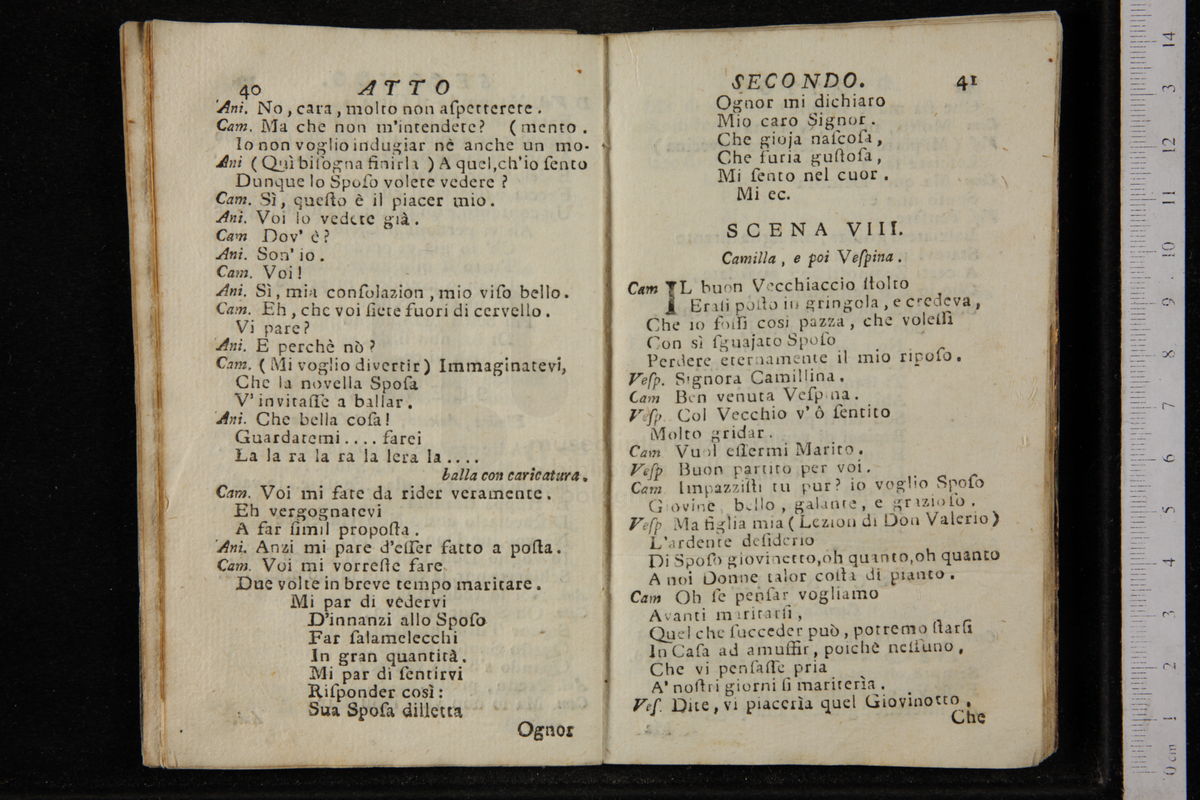 40 ATTO
Ani. No, cara, molto non aſpetterete.
Cam. Ma che non m'intendete? (mento.
Io non voglio indugiar nè anche un mo-
Ani (Quì biſogna finirla) A quel, ch'io ſento
Dunque lo Spoſo volete vedere?
Cam. Sì, queſto è il piacer mio.
Ani. Voi lo vedete già.
Cam Dov' è?
Ani. Son' io.
Cam. Voi!
Ani. Sì, mia conſolazion, mio viſo bello.
Cam. Eh, che voi ſiete fuori di cervello.
Vi pare?
Ani. E perchè nò?
Cam. (Mi voglio divertir) Immaginatevi,
Che la novella Spoſa
V'invitaſſe a ballar.
Ani. Che bella coſa!
Guardatemi.... farei
La la ra la ra la lera la....
balla con caricatura.
Cam. Voi mi fate da rider veramente.
Eh vergognatevi
A far ſimil propoſta.
Ani. Anzi mi pare d'eſſer fatto a poſta.
Cam. Voi mi vorreſte fare
Due volte in breve tempo maritare.
Mi par di vedervi
D'innanzi allo Spoſo
Far ſalamelecchi
In gran quantità.
Mi par di ſentirvi
Riſponder così:
Sua Spoſa dilletta
Ognor
SECONDO. 41
Ognor mi dichiaro
Mio caro Signor.
Che gioja naſcoſa,
Che furia guſtoſa,
Mi ſento nel cuor.
Mi ec.
SCENA VIII.
Camilla, e poi Veſpina.
Cam IL buon Vecchiaccio ſtolto
Eraſi poſto in gringola, e credeva,
Che io foſſi così pazza, che voleſſi
Con sì ſguajato Spoſo
Perdere eternamente il mio ripoſo.
Veſp. Signora Camillina.
Cam Ben venuta Veſpina.
Veſp. Col Vecchio v'ô ſentito
Molto gridar.
Cam Vuol eſſermi Marito.
Veſp Buon partito per voi.
Cam Impazziſti tu pur? io voglio Spoſo
Giovine, bello, galante, e grazioſo.
Veſp Ma figlia mia (Lezion di Don Valerio)
L'ardente deſiderio
Di Spoſo giovinetto, oh quanto, oh quanto
A noi Donne talor coſta di pianto.
Cam Oh ſe penſar vogliamo
Avanti maritarſi,
Quel che ſucceder può, potremo ſtarſi
In Caſa ad amuffir, poichè neſſuno,
Che vi penſaſſe pria
A' noſtri giorni ſi maritería.
Veſ. Dite, vi piacería quel Giovinotto,
Che
0 cm 1 2 3 4 5 6 7 8 9 10 11 12 3 14